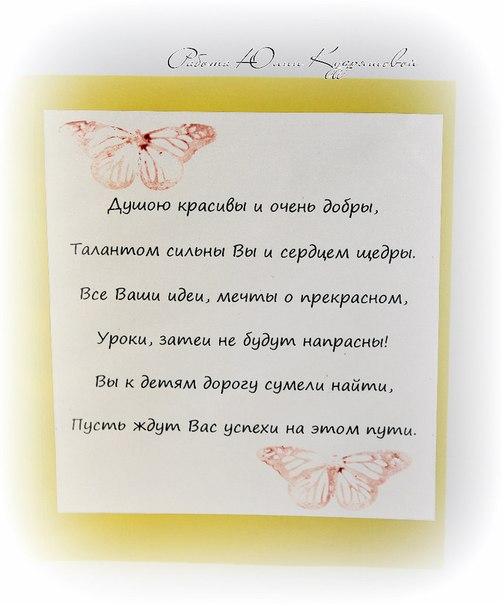 Работа Юлии Кудряшовой
Душою красивы и очень добры,
Талантом сильны Вы и сердцем щедры.
Все Ваши идеи, мечты о прекрасном,
Уроки, затеи не будут напрасны!
Вы к детям дорогу сумели найти,
Пусть ждут Вас успехи на этом пути.